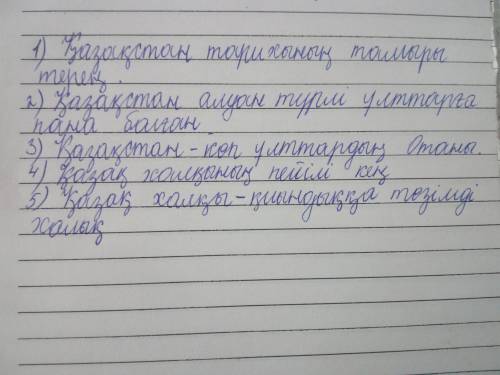 1) Қазақстан тарихының тамыры
терең.
2) Қазақстан алуан түрлі ұлттарға
пана болған
3) Қазақстан-көп ұлттардың Отаны.
4) Қазақ халқының пейілі кең
5) Қазақ халқы-қиындыққа төзімді
халық